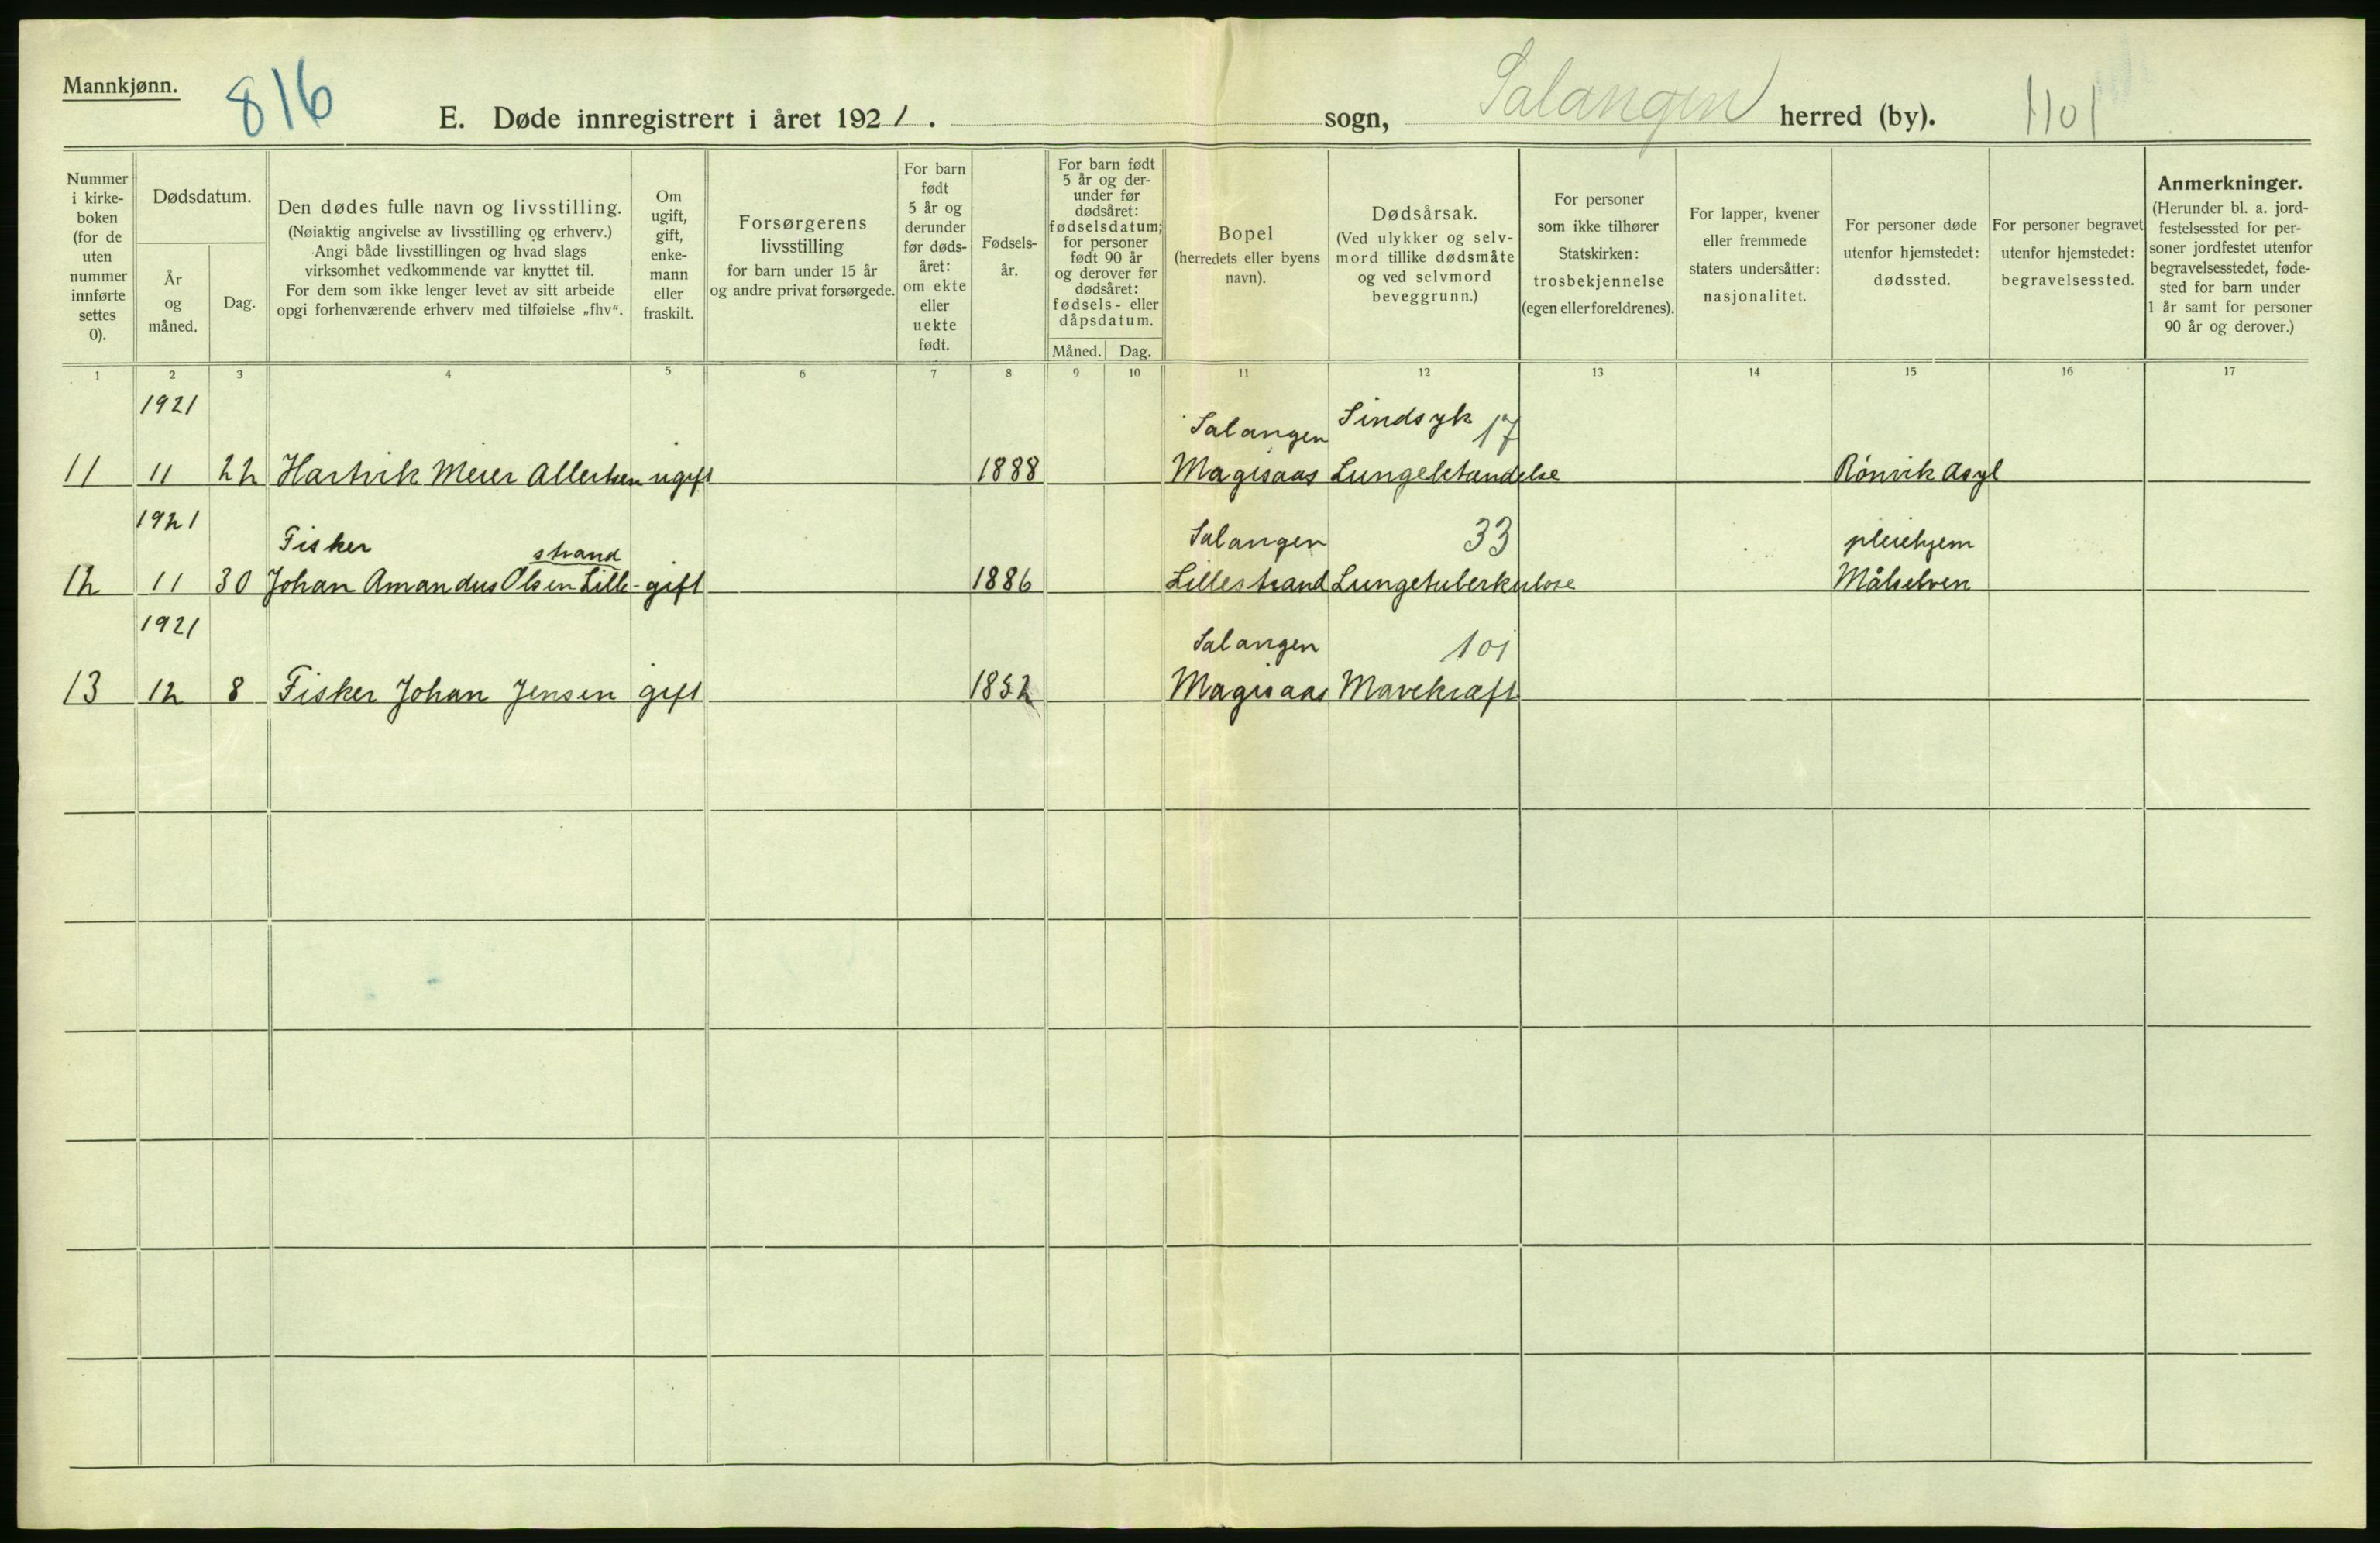 Mannkjønn.
816
E. Døde innregistrert i året 1921. sogn, Salangen herred (by). 1101
Nummer i kirke- boken (for de uten nummer innførte settes 0).
Dødsdatum.
År og måned.
Dag.
Den dødes fulle navn og livsstilling.
(Nøiaktig angivelse av livsstilling og erhverv.)
Angi både livsstillingen og hvad slags
virksomhet vedkommende var knyttet til.
For dem som ikke lenger levet av sitt arbeide
opgi forhenværende erhverv med tilføielse „fhv“.
Om ugift, gift, enke- mann eller fraskilt.
Forsørgerens
livsstilling
for barn under 15 år
og andre privat forsørgede.
For barn født 5 år og derunder før døds- året: om ekte eller uekte født.
Fødsels- år.
For barn født 5 år og der- under før dødsåret: fødselsdatum; for personer født 90 år og derover før dødsåret: fødsels- eller dåpsdatum.
Måned. Dag.
Bopel
(herredets eller byens
navn).
Dødsårsak.
(Ved ulykker og selv-
mord tillike dødsmåte
og ved selvmord
beveggrunn.)
For personer
som ikke tilhører
Statskirken:
trosbekjennelse
(egen eller foreldrenes).
For lapper, kvener
eller fremmede
staters undersåtter:
nasjonalitet.
For personer døde
utenfor hjemstedet:
dødssted.
For personer begravet
utenfor hjemstedet:
begravelsessted.
Anmerkninger.
(Herunder bl. a. jord-
festelsessted for per-
soner jordfestet utenfor
begravelsesstedet, føde-
sted for barn under
1 år samt for personer
90 år og derover.)
1 2 3 4 5 6 7 8 9 10 11 12 13 14 15 16 17
1921 Salangen Sindsyk 17
11 11 22 Hartvik Meier Allertsen ugift 1888 Magisaas Lungebetændelse Rönvik Asyl
1921 Fisker strand Salangen 33 pleiehjem
12 11 30 Johan Amandus Olsen Lille- gift 1886 Lillestrand Lungetuberkulose Målselven
1921 Salangen 101
13 12 8 Fisker Johan Jensen gift 1852 Magisaas Mavekræft